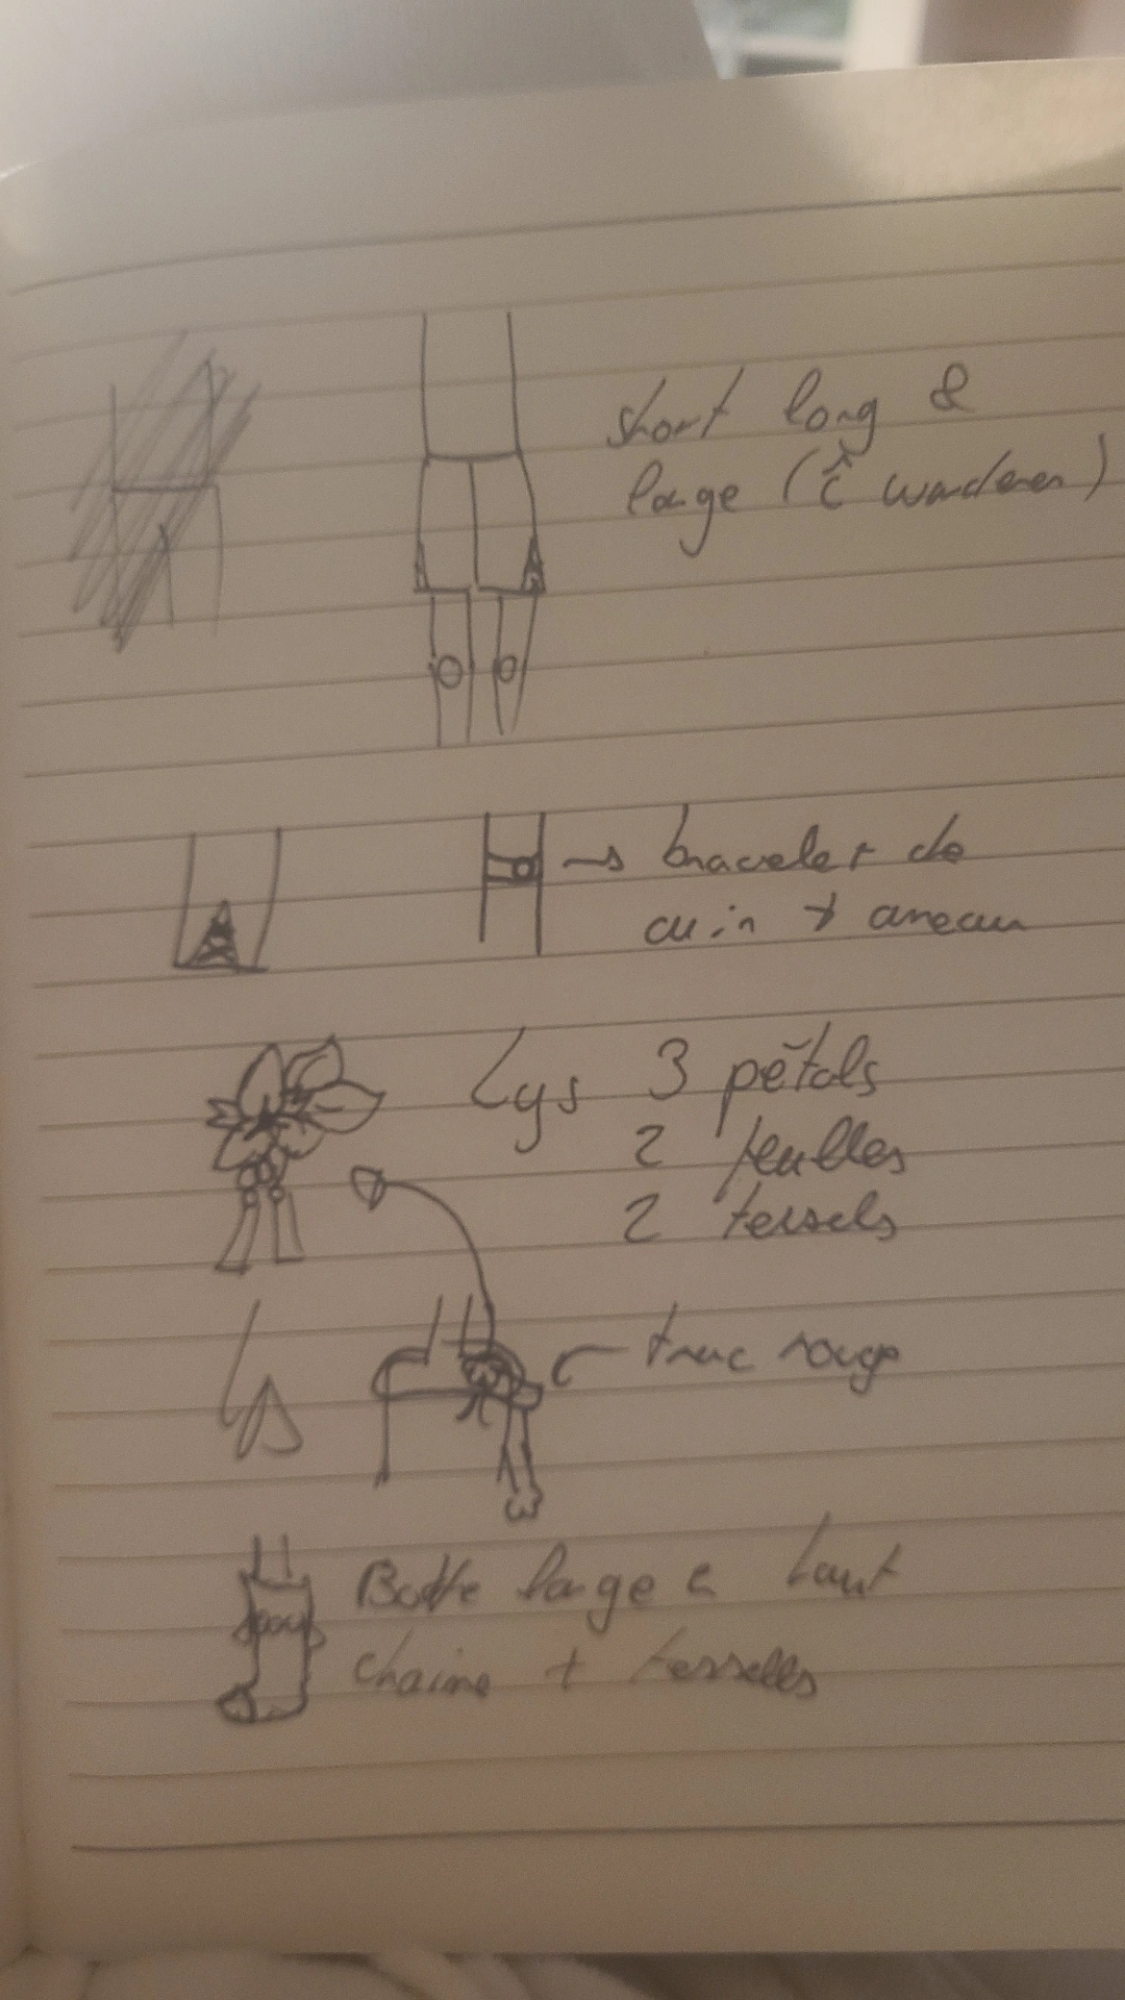 short long &
large (c wanderer)
bracelet de
cuir + anneau
Lys 3 pétals
2 feuilles
2 tessels
truc rouge
Botte large & haut
chaine + tesselles